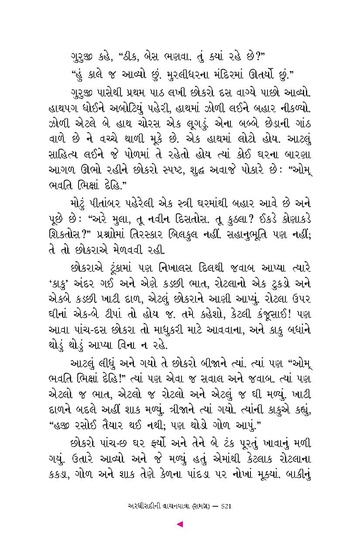 ગુરુજી કહે, “ઠીક, બેસ ભણવા. તું ક્યાં રહે છે?”
“હું કાલે જ આવ્યો છું. મુરલીધરના મંદિરમાં ઊતર્યો છું.”
ગુરુજી પાસેથી પ્રથમ પાઠ લખી છોકરો દસ વાગ્યે પાછો આવ્યો.
હાથપગ ધોઈને અબોટિયું પહેરી, હાથમાં ઝોળી લઈને બહાર નીકળ્યો.
ઝોળી એટલે બે હાથ ચોરસ એક લૂગડું. એના બબ્બે છેડાની ગાંઠ
વાળે છે ને વચ્ચે થાળી મૂકે છે. એક હાથમાં લોટો હોય. આટલું
સાહિત્ય લઈને જે પોળમાં તે રહેતો હોય ત્યાં કોઈ ઘરના બારણા
આગળ ઊભો રહીને છોકરો સ્પષ્ટ, શુદ્ધ અવાજે પોકારે છે: “ઓમ્
ભવતિ ભિક્ષાં દેહિ.”
મોટું પીતાંબર પહેરેલી એક સ્ત્રી ઘરમાંથી બહાર આવે છે અને
પૂછે છે: “અરે મુલા, તૂ નવીન દિસતોસ. તૂ કુઠલા? ઈકડે કોણાકડે
શિકતોસ?” પ્રશ્નોમાં તિરસ્કાર બિલકુલ નહીં. સહાનુભૂતિ પણ નહીં;
તે તો છોકરાએ મેળવવી રહી.
છોકરાએ ટૂંકામાં પણ નિખાલસ દિલથી જવાબ આપ્યા ત્યારે
‘કાકુ’ અંદર ગઈ અને એણે કડછી ભાત, રોટલાનો એક ટુકડો અને
એકબે કડછી ખાટી દાળ, એટલું છોકરાને આણી આપ્યું. રોટલા ઉપર
ઘીનાં એક-બે ટીપાં તો હોય જ. તમે કહેશો, કેટલી કંજૂસાઈ! પણ
આવા પાંચ-દસ છોકરા તો માધુકરી માટે આવવાના, અને કાકુ બધાંને
થોડું થોડું આપ્યા વિના ન રહે.
આટલું લીધું અને ગયો તે છોકરો બીજાને ત્યાં. ત્યાં પણ “ઓમ્
ભવતિ ભિક્ષાં દેહિ!” ત્યાં પણ એવા જ સવાલ અને જવાબ. ત્યાં પણ
એટલો જ ભાત, એટલો જ રોટલો અને એટલું જ ઘી મળ્યું. ખાટી
દાળને બદલે અહીં શાક મળ્યું. ત્રીજાને ત્યાં ગયો. ત્યાંની કાકુએ કહ્યું,
“હજી રસોઈ તૈયાર થઈ નથી; પણ થોડો ગોળ આપું.”
છોકરો પાંચ-છ ઘર ફર્યો અને તેને બે ટંક પૂરતું ખાવાનું મળી
ગયું. ઉતારે આવ્યો અને જે મળ્યું હતું એમાંથી કેટલાક રોટલાના
કકડા, ગોળ અને શાક તેણે કેળના પાંદડા પર નોખાં મૂક્યાં. બાકીનું
અરધીસદીની વાચનયાત્રા (સમગ્ર) — 521